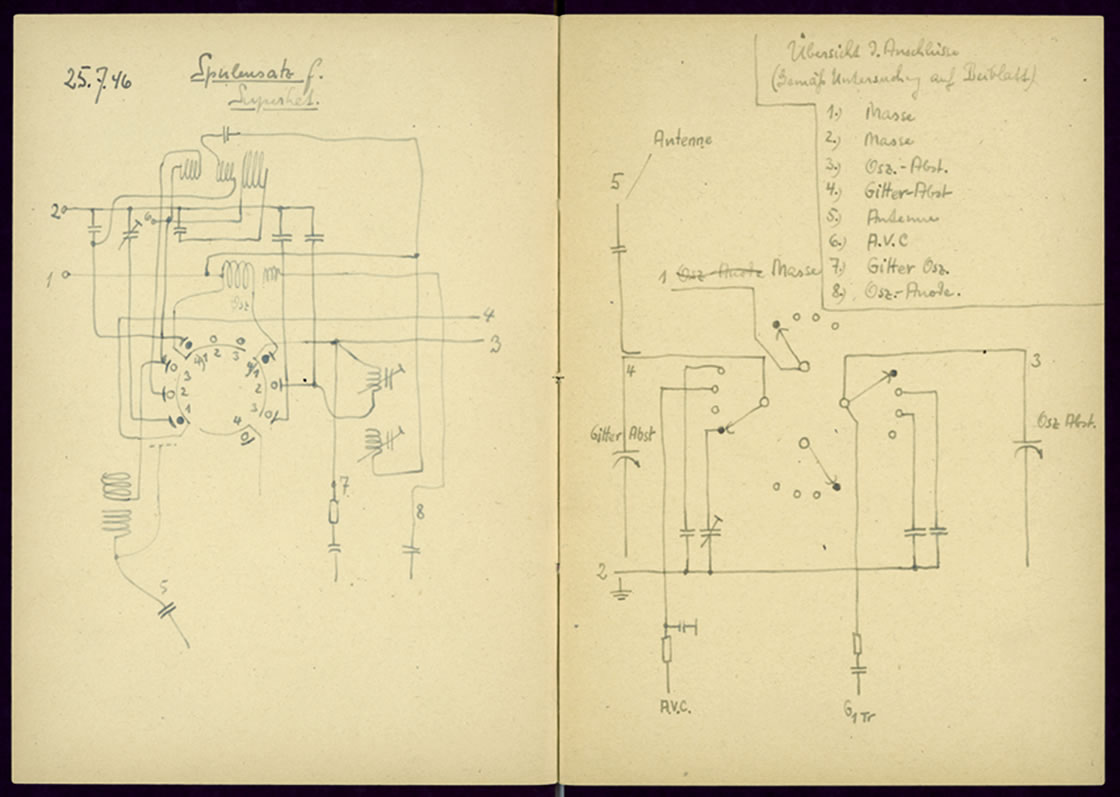 25.7.46
Spulensatz f.
Superhet.
2
6
1
Osz
4
3
4 1 2 3
3
2
1
4 1
2
3
4
7
8
5
Übersicht d. Anschlüsse
(Gemäß Untersuchung auf Beiblatt)
1.) Masse
2.) Masse
3.) Osz.-Abst.
4.) Gitter-Abst
5.) Antenne
6.) A.V.C
7.) Gitter Osz.
8.) Osz.-Anode.
Antenne
5
1 Osz-Anode Masse
4
3
Gitter Abst
Osz Abst.
2
A.V.C.
G1 Tr